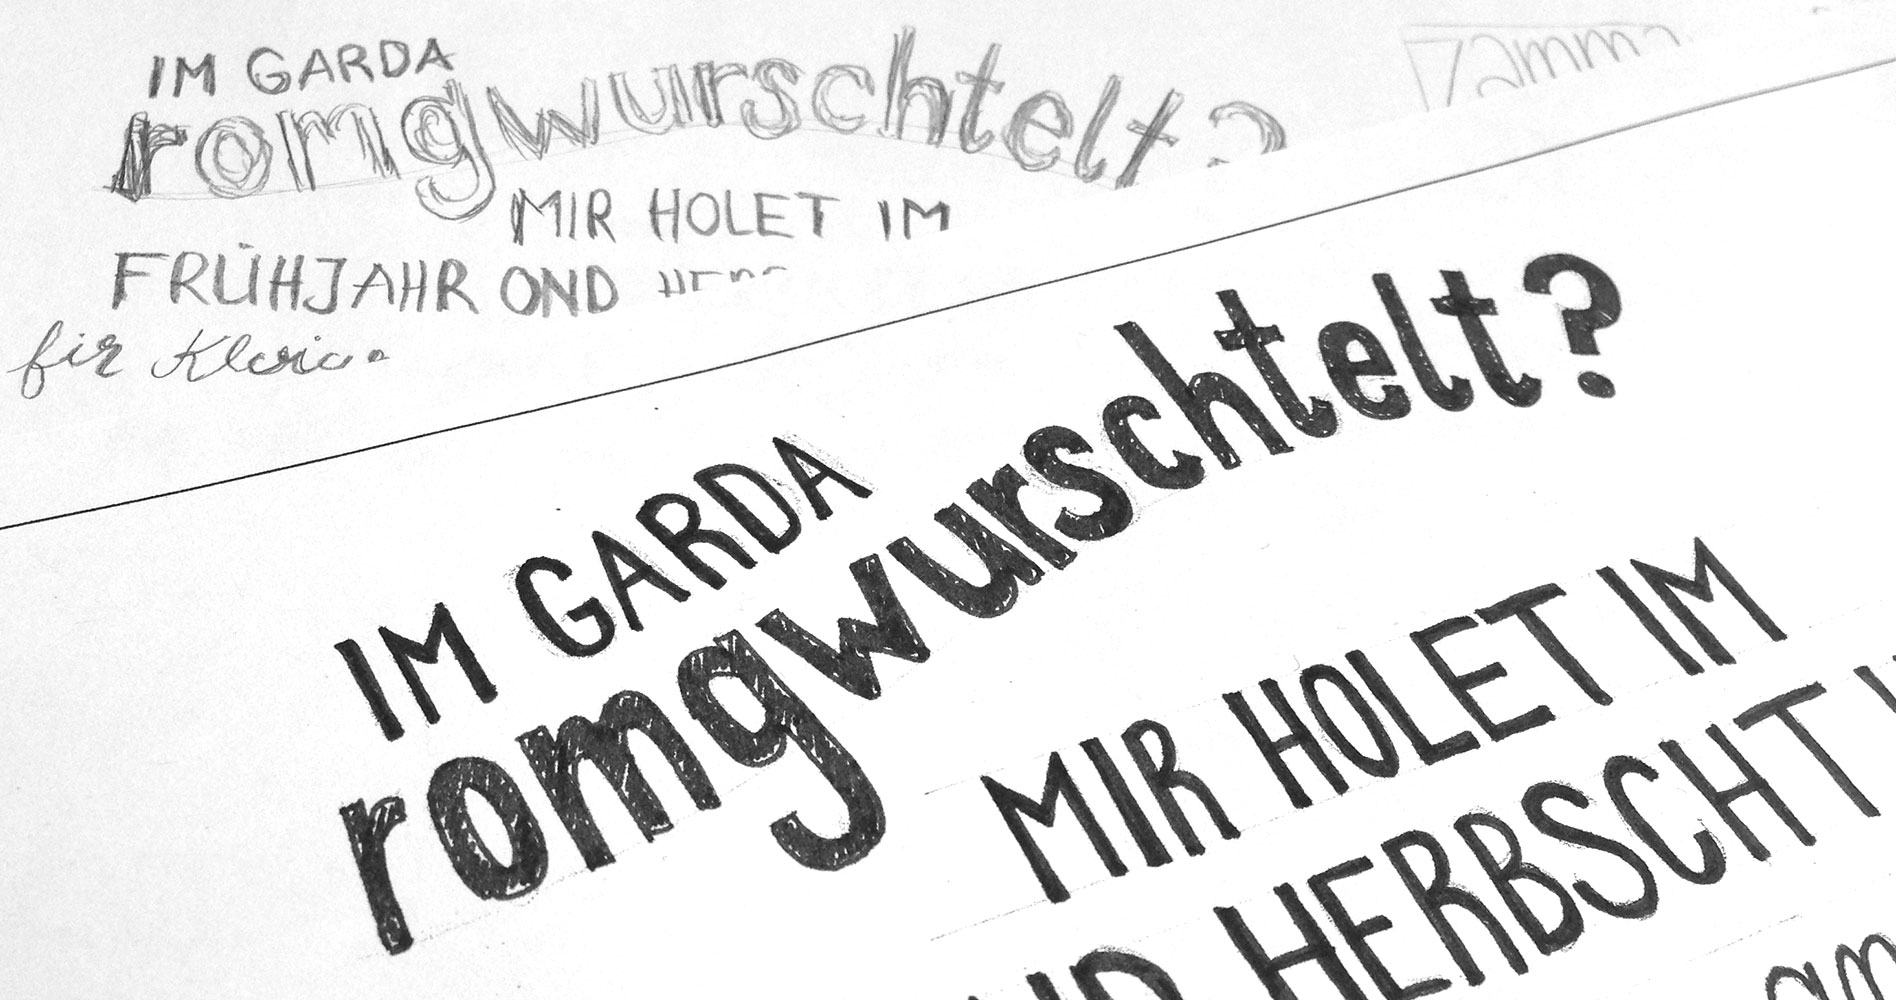 IM GARDA
romgwurschtelt?
MIR HOLET IM
FRÜHJAHR OND
fir
IM GARDA
romgwurschtelt?
MIR HOLET IM
HERBSCHT